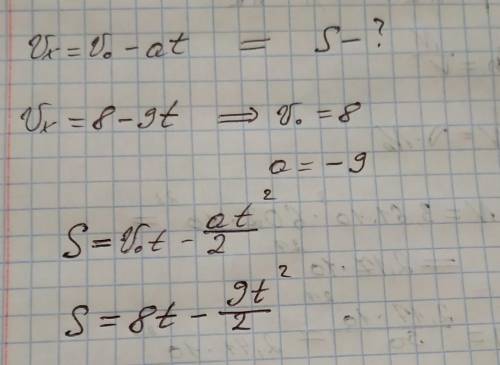 Vx = V₀ - at = S - ?
Vx = 8 - 9t ⟹ V₀ = 8
a = -9
S = V₀t - at²/2
S = 8t - 9t²/2